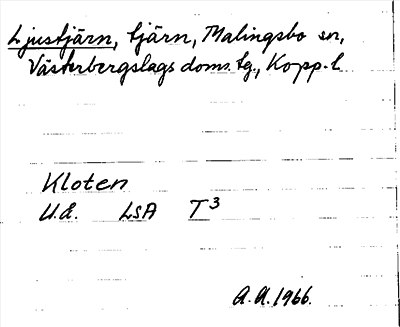 Ljustjärn, tjärn, Malingsbo sn,
Västerbergslags doms. tg., Kopp. l.
Kloten
U.d. LSA T³
A.A. 1966.